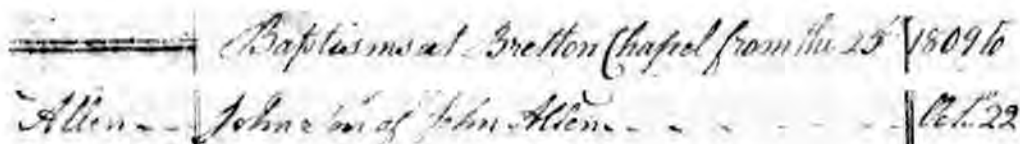 Baptisms at Bretton Chapel from the 25 1809 to
Allen John son of John Allen Oct. 22